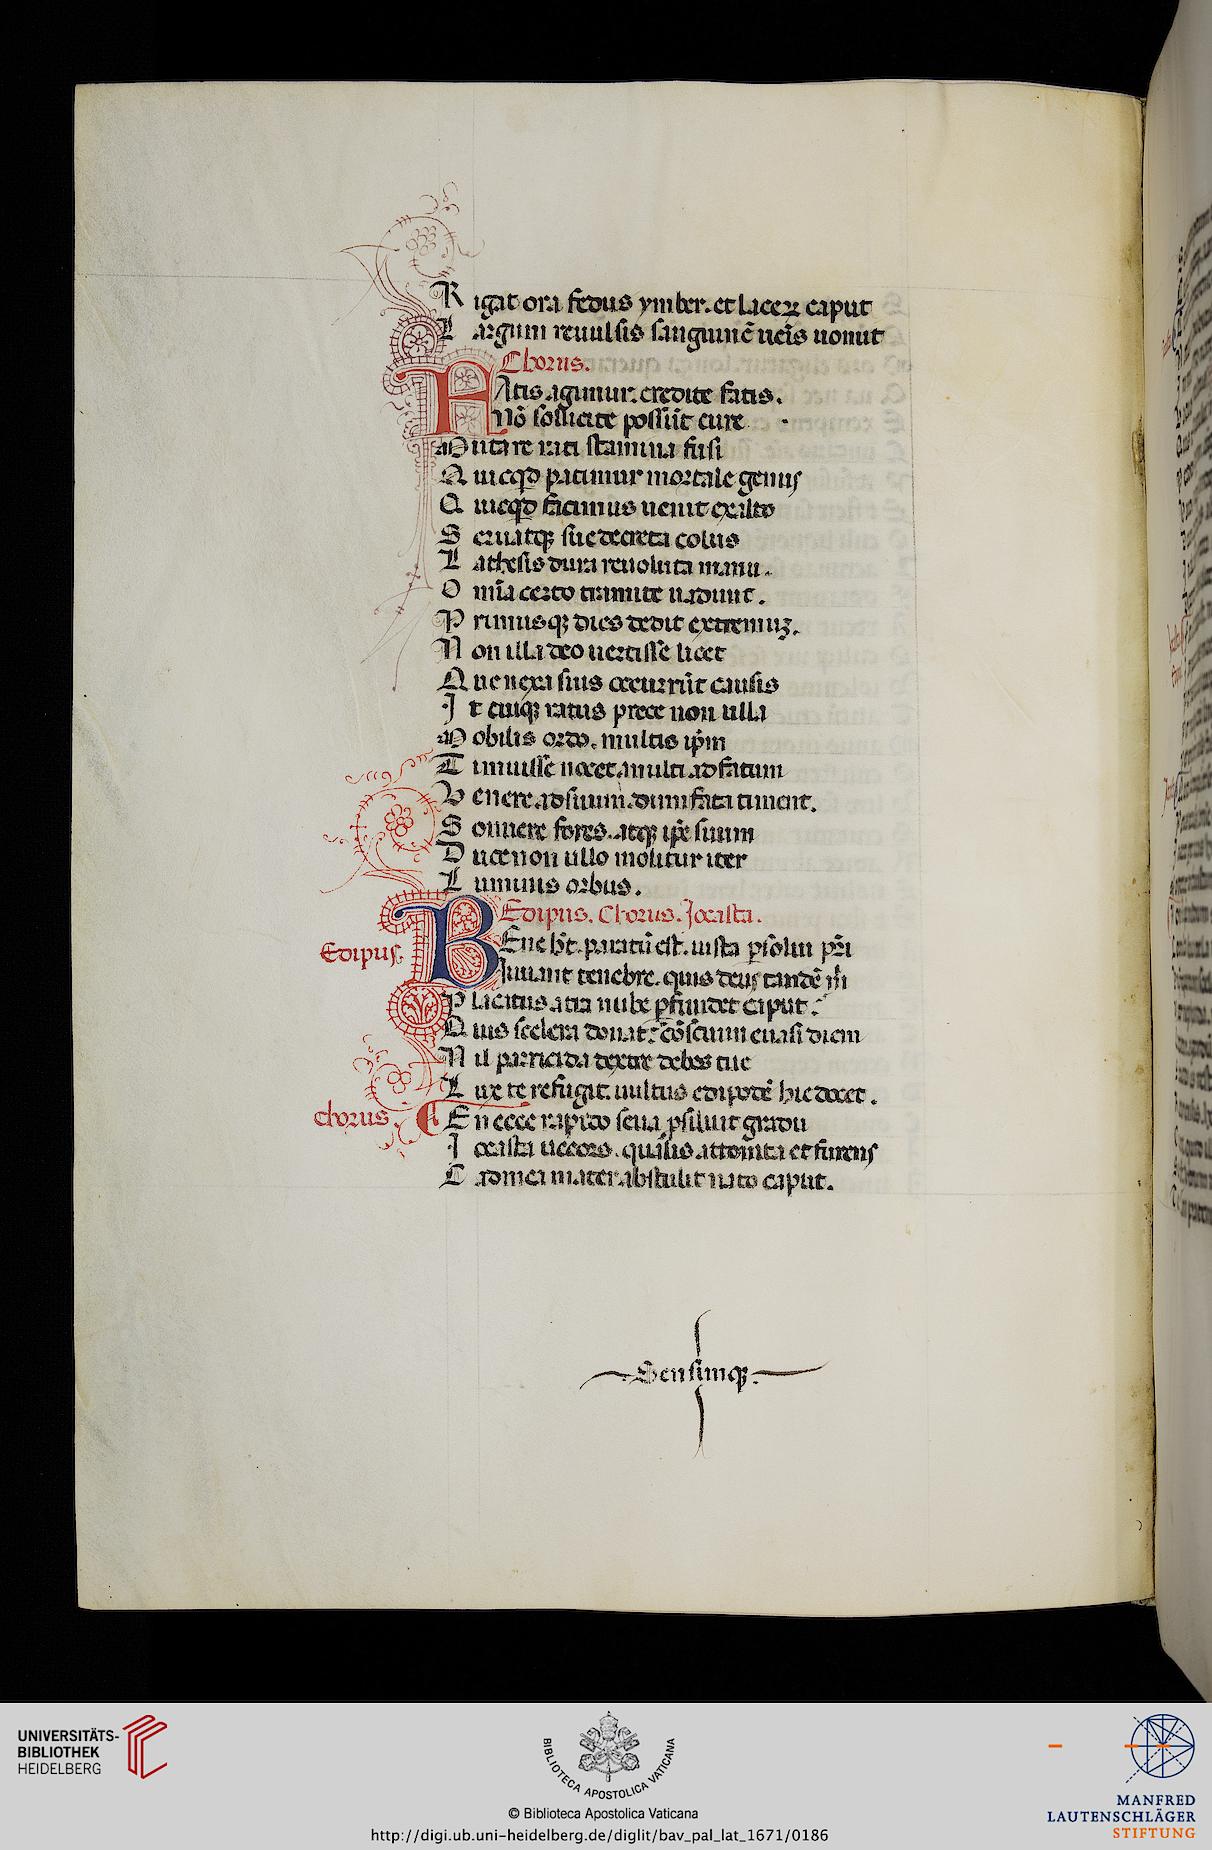 R igat ora fedus ymber. et laceꝝ caput
L argum reuulsis sanguinē ueīs uomit
Chorus.
FAtis agimur. credite fatis.
Nō sollicite possūt cure
M utare rati stamina fusi
Q uicꝗd patimur mortale genus
Q uicꝗd facimus uenit ex alto
S eruatqꝫ sue decreta colus
L athesis dura reuoluta manu.
O mīa certo tramite uadunt.
P rimusqꝫ dies dedit extremuꝫ.
N on illa deo uertisse licet
Q ue nexa suis occurrūt causis
I t cuiqꝫ ratus prece non ulla
M obilis ordo. multis ip̄m
T imuisse nocet. multi ad fatum
V enere ad suum. dum fata timent.
S onuere fores. atqꝫ ip̄e suum
D uce non ullo molitur iter
L uminis orbus.
Edipus. Chorus. Jocasta.
Edipus.
BEne hēt. paratū est. iusta ꝑsolui pr̄i
Iuuant tenebre. quis deus tandē m̄i
P lacitus atra nube ꝑfundet caput.
Q uis scelera donat. cōscium euasi diem
N il parricida dextre debes tue
L ux te refugit. uultus edipodē hic decet.
chorus.
E n ecce rapido seua ꝓsiluit gradu
I ocasta uecors. qualis attonita et furens
C admea mater abstulit nato caput.
Sensimqꝫ.
UNIVERSITÄTS-
BIBLIOTHEK
HEIDELBERG
BIBLIOTECA APOSTOLICA VATICANA
© Biblioteca Apostolica Vaticana
http://digi.ub.uni-heidelberg.de/diglit/bav_pal_lat_1671/0186
MANFRED
LAUTENSCHLÄGER
STIFTUNG